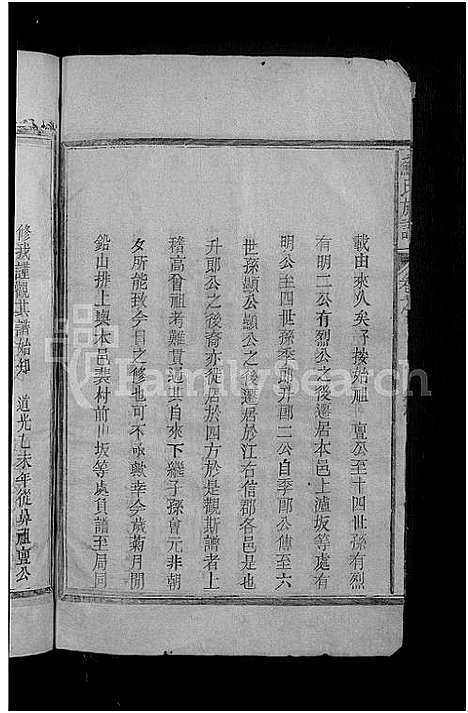 載由來久矣予按始祖 亶公至十四世孫有烈
有明二公有烈公之後遷居本邑上瀘坂等處有
明公至四世孫季郎升郎二公自季郎公傳至六
世孫顯公顯公之後遷居於江右信郡各邑是也
升郎公之後裔亦徙居於四方於是觀斯譜者上
稽高曾祖考難貫通其自來下繼子孫曾元非朝
夕所能致今日之修也可不承與幸今歲菊月閒
鉛山排上與本邑裴村前山坂等處負譜至局同
修我謹觀其譜始知 道光乙未年從鼻祖亶公
氏族譜
FamilySearch